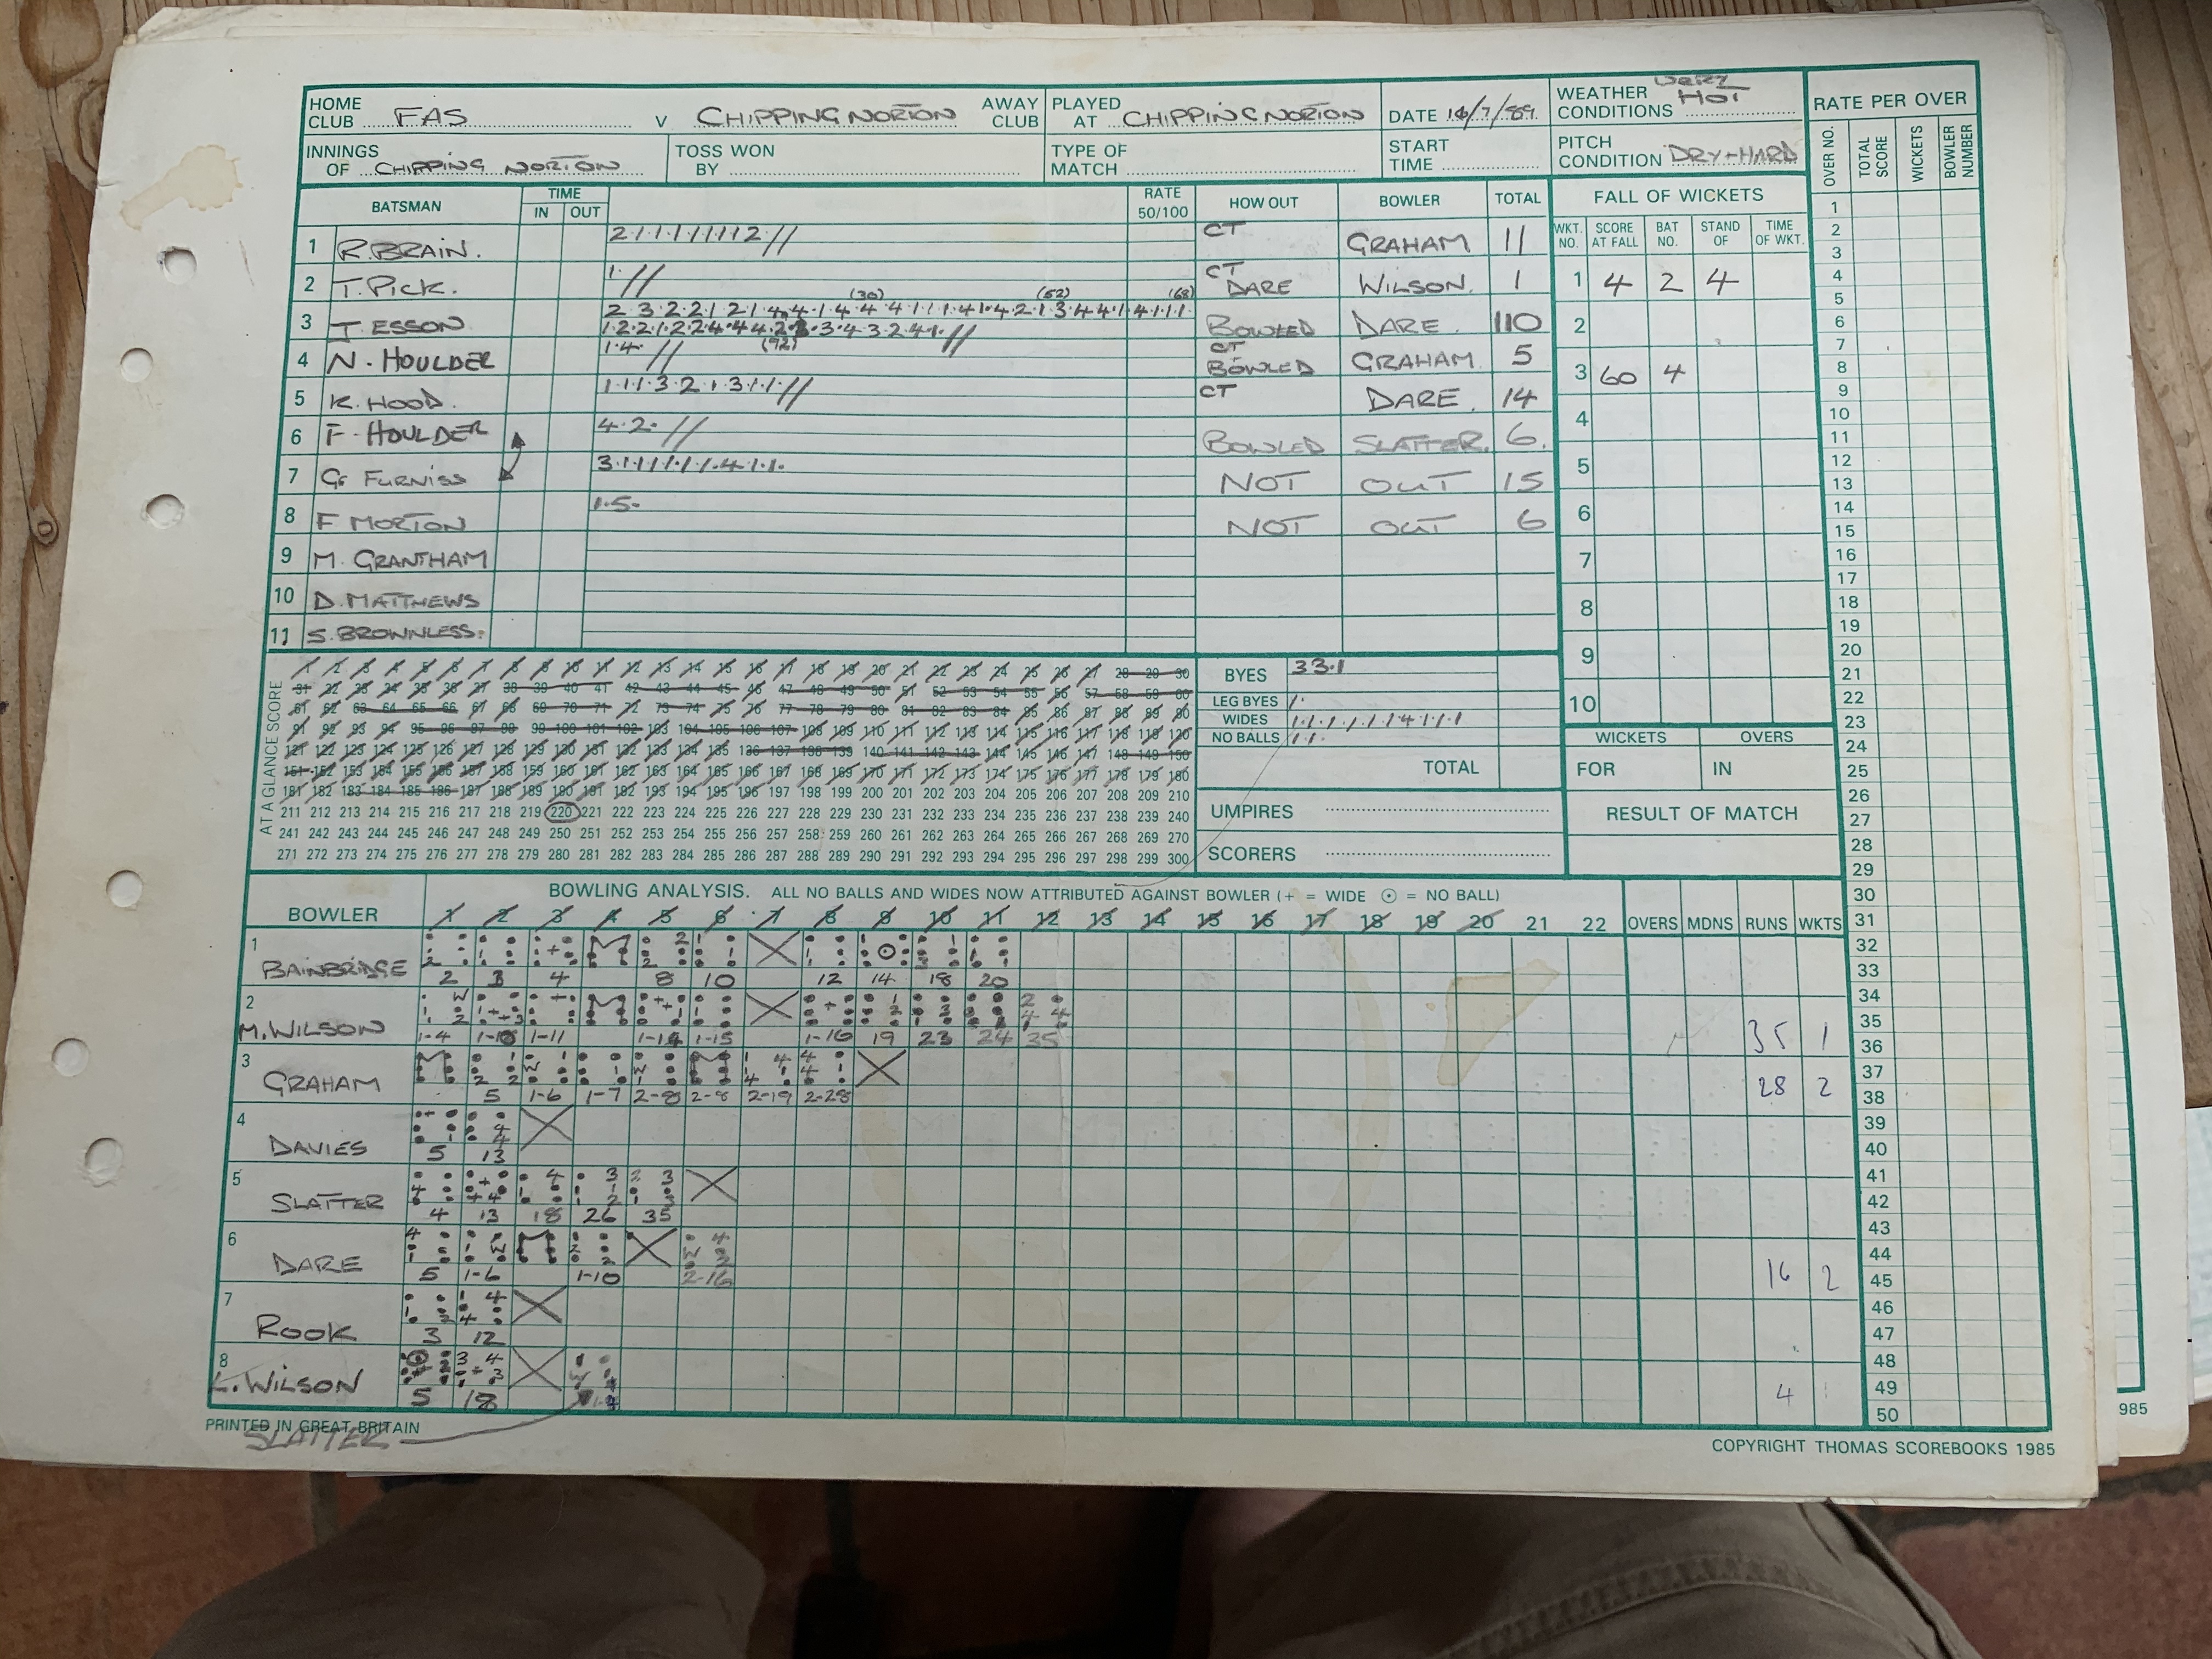 HOME CLUB FAS V CHIPPING NORTON AWAY CLUB PLAYED AT CHIPPING NORTON DATE 16/7/89 WEATHER CONDITIONS VERY HOT RATE PER OVER
INNINGS OF CHIPPING NORTON TOSS WON BY TYPE OF MATCH START TIME PITCH CONDITION DRY + HARD
OVER NO. TOTAL SCORE WICKETS BOWLER NUMBER
BATSMAN TIME IN OUT RATE 50/100 HOW OUT BOWLER TOTAL FALL OF WICKETS
WKT. NO. SCORE AT FALL BAT NO. STAND OF TIME OF WKT.
1 R. BRAIN. 2 1 1 1 1 1 1 1 2 // CT GRAHAM 11
2 T. PICK. 1 // CT DARE WILSON 1
(30) (52) (68)
3 T. ESSON BOWLED DARE. 110
(92)
4 N. HOULDER 1.4. // CT BOWLED GRAHAM 5
5 K. HOOD. 1.1.1.3.2.1.3.1.1. // CT DARE. 14
6 F. HOULDER 4.2. // BOWLED SLATTER. 6.
7 G. FURNISS 3.1.1.1.1.1.1.4.1.1. NOT OUT 15
8 F MORTON 1.5. NOT OUT 6
9 M. GRANTHAM
10 D. MATTHEWS
11 S. BROWNLESS.
1 4 2 4
2
3 60 4
4
5
6
7
8
9
10
WICKETS OVERS
FOR IN
RESULT OF MATCH
AT A GLANCE SCORE
1 2 3 4 5 6 7 8 9 10 11 12 13 14 15 16 17 18 19 20 21 22 23 24 25 26 27 28 29 30
31 32 33 34 35 36 37 38 39 40 41 42 43 44 45 46 47 48 49 50 51 52 53 54 55 56 57 58 59 60
61 62 63 64 65 66 67 68 69 70 71 72 73 74 75 76 77 78 79 80 81 82 83 84 85 86 87 88 89 90
91 92 93 94 95 96 97 98 99 100 101 102 103 104 105 106 107 108 109 110 111 112 113 114 115 116 117 118 119 120
121 122 123 124 125 126 127 128 129 130 131 132 133 134 135 136 137 138 139 140 141 142 143 144 145 146 147 148 149 150
151 152 153 154 155 156 157 158 159 160 161 162 163 164 165 166 167 168 169 170 171 172 173 174 175 176 177 178 179 180
181 182 183 184 185 186 187 188 189 190 191 192 193 194 195 196 197 198 199 200 201 202 203 204 205 206 207 208 209 210
211 212 213 214 215 216 217 218 219 220 221 222 223 224 225 226 227 228 229 230 231 232 233 234 235 236 237 238 239 240
241 242 243 244 245 246 247 248 249 250 251 252 253 254 255 256 257 258 259 260 261 262 263 264 265 266 267 268 269 270
271 272 273 274 275 276 277 278 279 280 281 282 283 284 285 286 287 288 289 290 291 292 293 294 295 296 297 298 299 300
BYES 3 3.1
LEG BYES 1.
WIDES 1.1.1.1.1.1.4.1.1.1
NO BALLS 1.1.
TOTAL
UMPIRES
SCORERS
BOWLING ANALYSIS. ALL NO BALLS AND WIDES NOW ATTRIBUTED AGAINST BOWLER (+ = WIDE ⊙ = NO BALL)
BOWLER 1 2 3 4 5 6 7 8 9 10 11 12 13 14 15 16 17 18 19 20 21 22 OVERS MDNS RUNS WKTS
1 BAINBRIDGE 2 3 4 M 8 10 12 14 18 20
2 M. WILSON 1-4 1-10 1-11 M 1-14 1-15 1-16 19 23 24 35 35 1
3 GRAHAM M 5 1-6 1-7 2-8 M 2-8 2-19 2-28 28 2
4 DAVIES 5 13
5 SLATTER 4 13 18 26 35
6 DARE 5 1-6 M 1-10 2-16 16 2
7 ROOK 3 12
8 K. WILSON 5 18 4
SLATTER
1
2
3
4
5
6
7
8
9
10
11
12
13
14
15
16
17
18
19
20
21
22
23
24
25
26
27
28
29
30
31
32
33
34
35
36
37
38
39
40
41
42
43
44
45
46
47
48
49
50
PRINTED IN GREAT BRITAIN
COPYRIGHT THOMAS SCOREBOOKS 1985
985